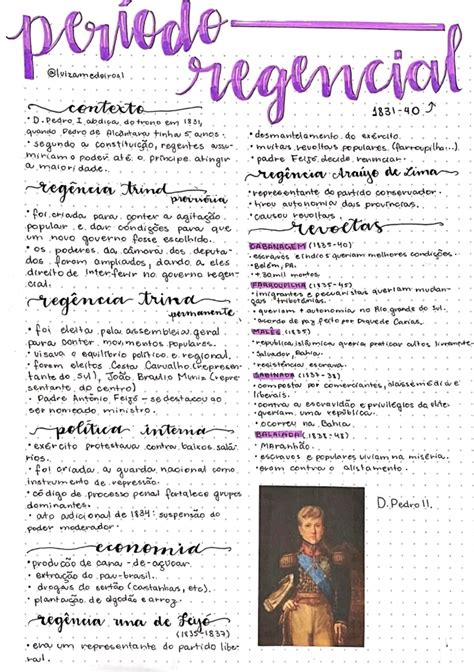 período
regencial
@luizamedeiros1
1831-40
contexto
• D. Pedro I abdica do trono em 1831,
quando Pedro de Alcântara tinha 5 anos.
• segundo a constituição, regentes assu-
miriam o poder até o príncipe atingir
a maioridade.
regência trina
provisória
• foi criada para conter a agitação
popular e dar condições para que
um novo governo fosse escolhido.
• os poderes da câmara dos deputa-
dos foram ampliados, dando a eles
direito de interferir no governo regen-
cial.
regência trina
permanente
• foi eleita pela assembleia geral
para conter movimentos populares.
• visava o equilíbrio político e regional.
• foram eleitos Costa Carvalho (represen-
tante do sul), João Braulio Muniz (repre-
sentante do centro)
• Padre Antônio Feijó - se destacou ao
ser nomeado ministro.
política interna
• exército protestava contra baixos salá-
rios.
• foi criada a guarda nacional como
instrumento de repressão.
• código de processo penal fortalece grupos
dominantes.
• ato adicional de 1834: suspensão do
poder moderador.
economia
• produção de cana-de-açúcar.
• extração do pau-brasil.
• drogas do sertão (castanhas, etc).
• plantação de algodão e arroz.
regência una de Feijó
(1835-1837)
• era um representante do partido libe-
ral.
• desmantelamento do exército.
• muitas revoltas populares (farroupilha...)
• padre Feijó decide renunciar.
regência Araújo de Lima
• representante do partido conservador.
• tirou autonomia das províncias.
• causou revoltas.
revoltas
CABANAGEM (1835-40)
• escravos e índios queriam melhores condições.
• Belém, PA.
• +30 mil mortos
FARROUPILHA (1835-45)
• imigrantes e pecuaristas queriam mudan-
ças tributárias.
• queriam + autonomia no Rio grande do sul.
• acordo de paz feito por Duque de Caxias.
MALÊS (1835)
• república islâmica queria praticar cultos livremente
• Salvador, Bahia.
• resistência escrava.
SABINADA (1837-38)
• composta por comerciantes, classe média e
liberais.
• contra a escravidão e privilégios da elite
queriam uma república.
• ocorreu na Bahia.
BALAIADA (1838-48)
• Maranhão.
• escravos e populares viviam na miséria.
• eram contra o alistamento.
D. Pedro II.